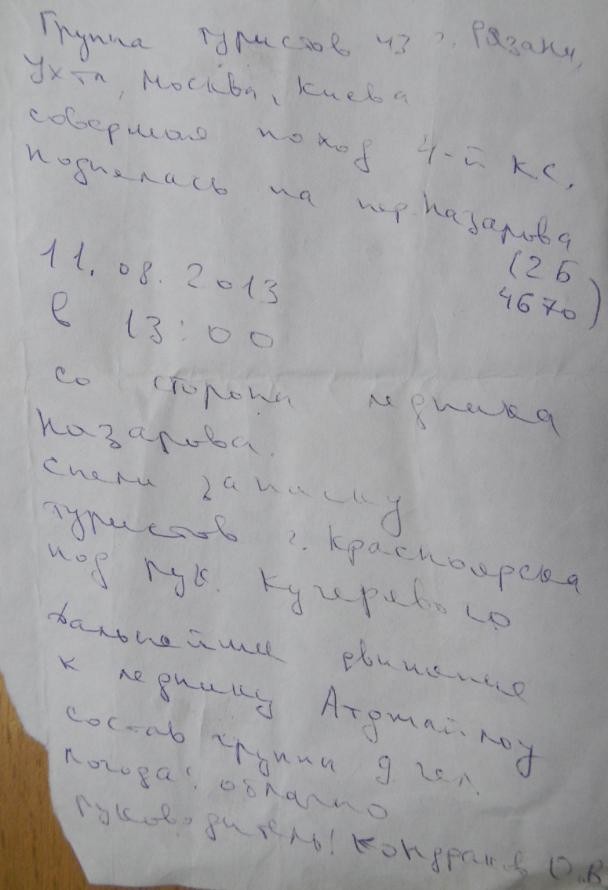 Группа туристов из г. Рязани,
Ухта, Москва, Киева
совершая поход 4-й кс,
поднялась на пер. Назарова
(2Б
4670)
11.08.2013
в 13:00
со стороны ледника
Назарова.
сняли записку
туристов г. Красноярска
под рук.
Дальнейшее движение
к леднику Атджайлоу
состав группы 9 чел.
погода: облачно
Руководитель! О.В